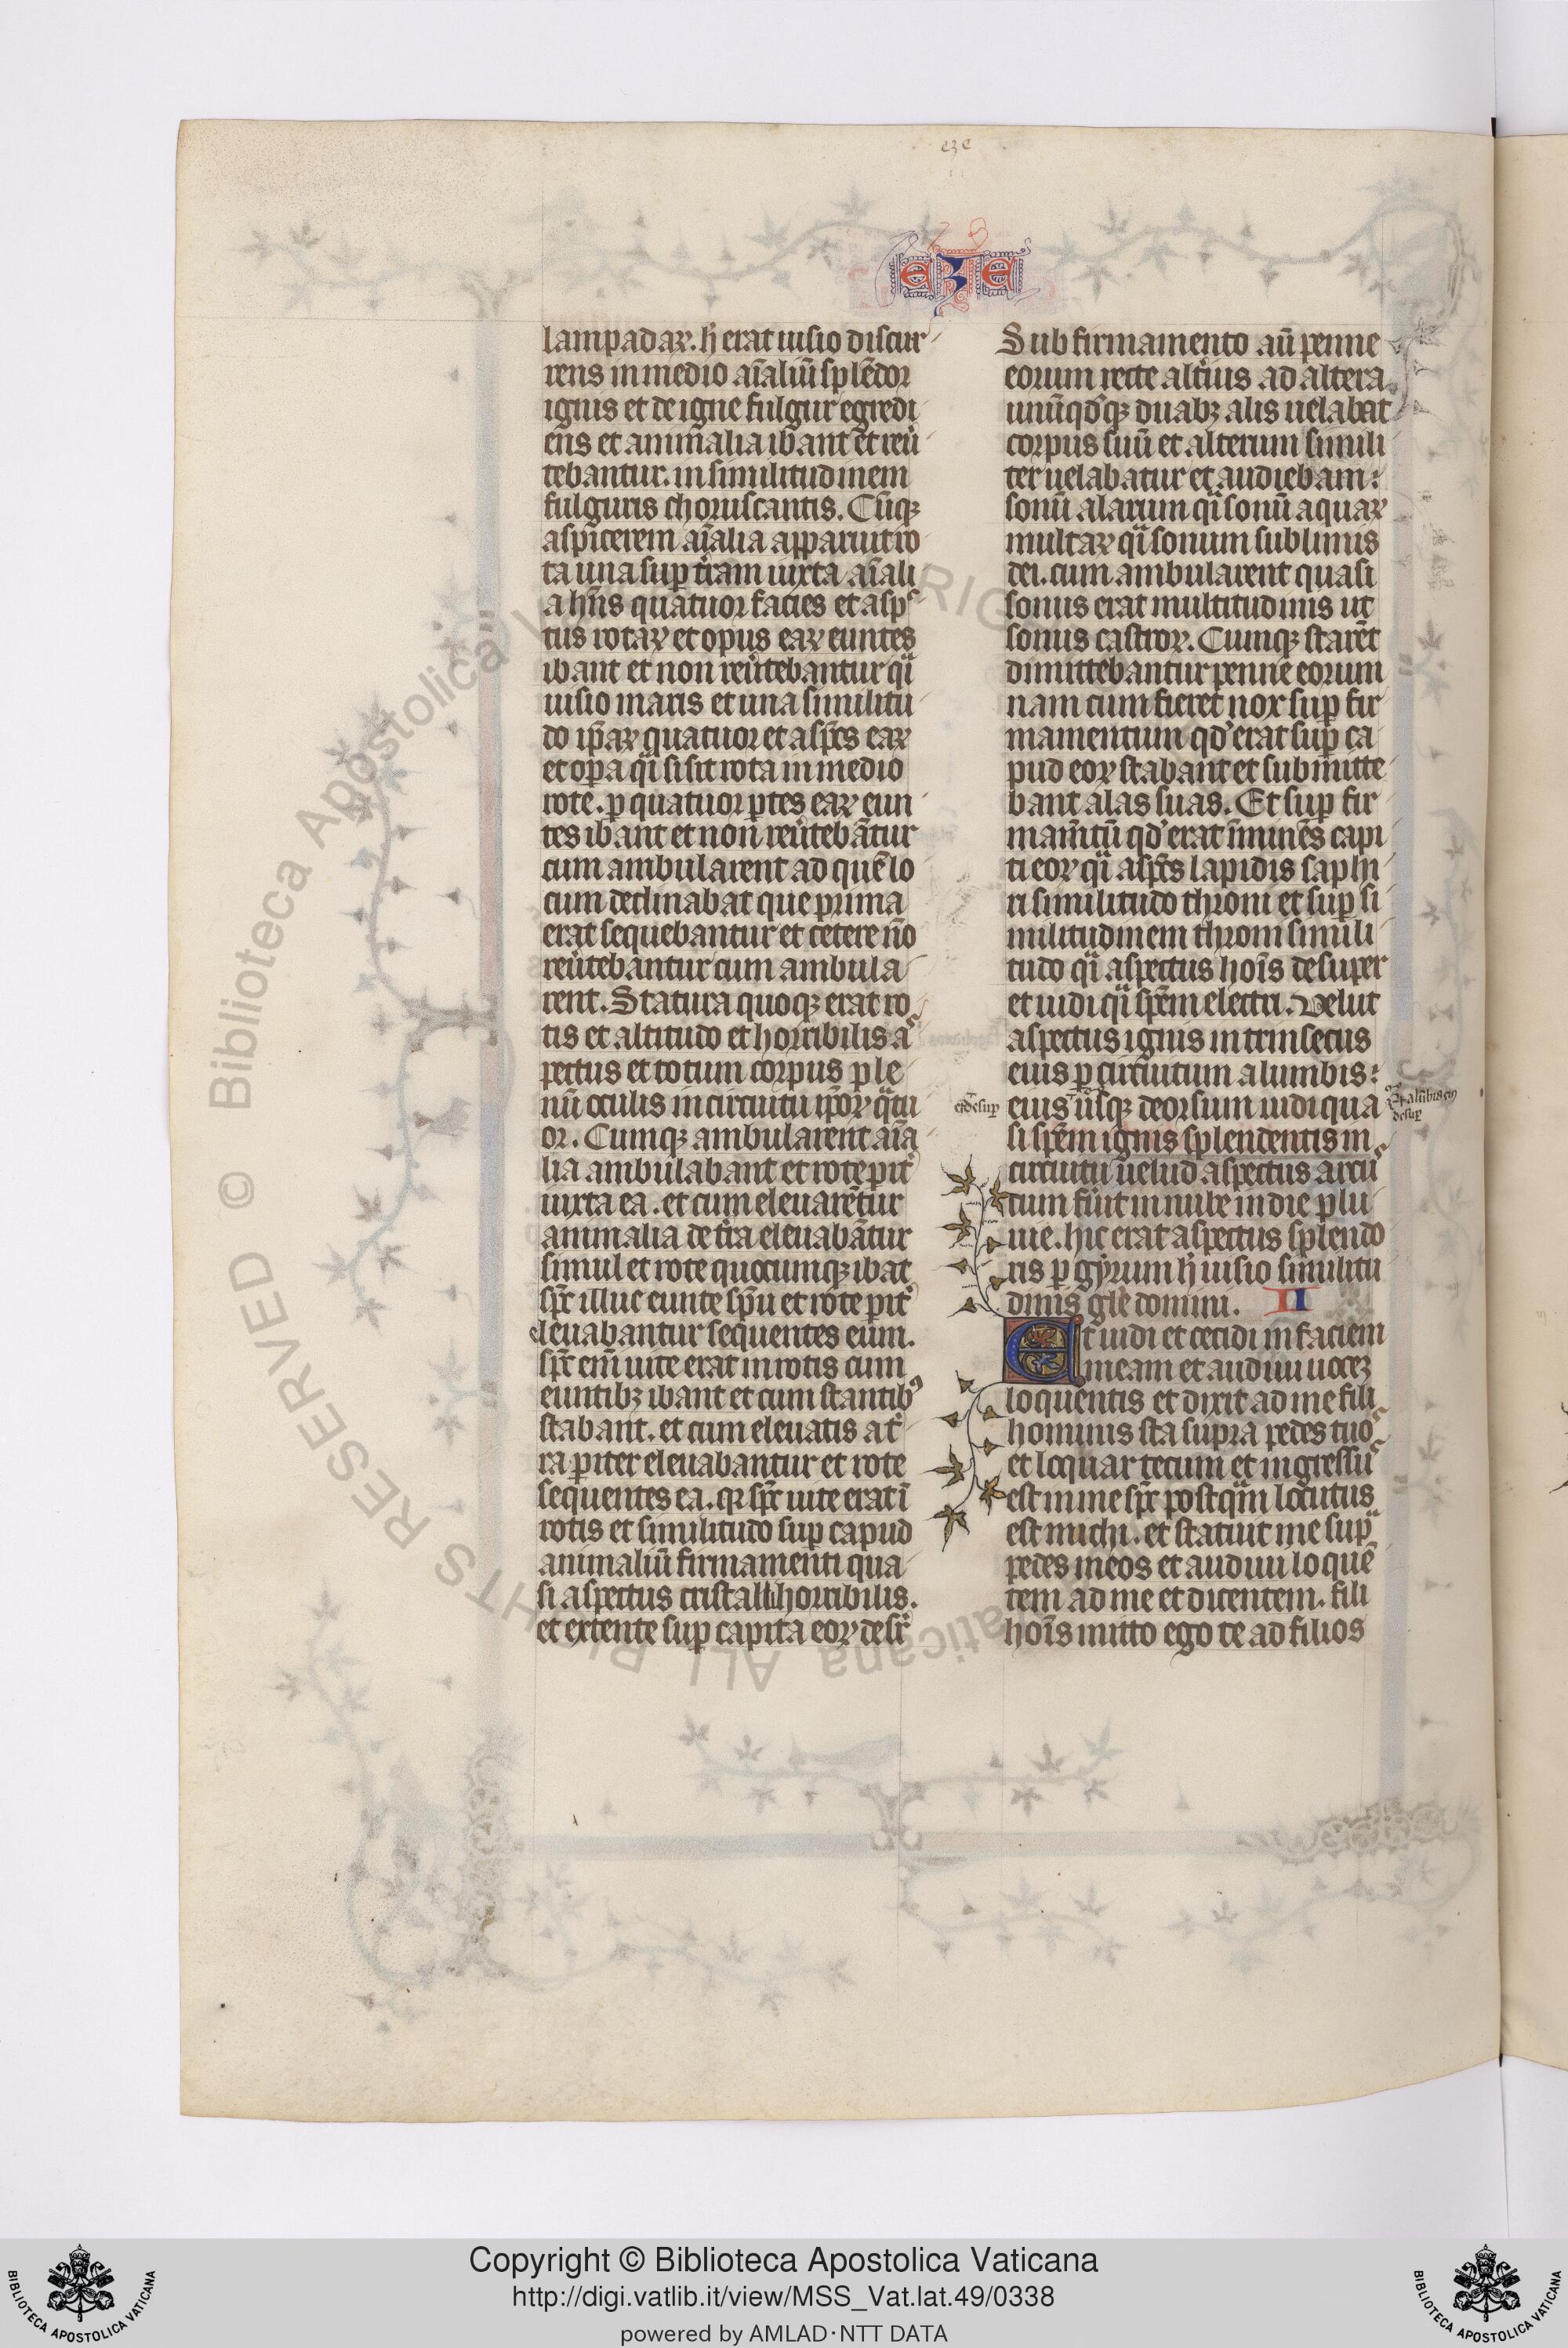 eze
EZE
lampadaꝝ. h̄ erat uisio discur
rens in medio aīaliū splēdor
ignis et de igne fulgur egredi
ens et animalia ibant et reu̾
tebantur. in similitudinem
fulguris choruscantis. Cūqꝫ
aspicerem aīalia apparuit ro
ta una sup t̾ram iuxta aīali
a hn̄s quatuor facies et asp
tus rotaꝝ et opus eaꝝ euntes
ibant et non reu̾tebantur qͣi
uisio maris et una similitu
do ip̄aꝝ quatuor et asp̄cs eaꝝ
et oꝑa qͣi si sit rota in medio
rote. ꝑ quatuor ꝑtes eaꝝ eun
tes ibant et non reu̾tebātur
cum ambularent ad quē lo
cum declinabat que prima
erat sequebantur et cetere nō
reu̾tebantur cum ambula
rent. Statura quoqꝫ erat ro
tis et altitudo et horribilis aˢ
pectus et totum corpus ple
nū oculis in circuitu ip̄oꝝ qͣtu
or. Cumqꝫ ambularent aīa
lia ambulabant et rote pit̾
iuxta ea. et cum eleuarētur
animalia de t̾ra eleuabātur
simul et rote quocumqꝫ ibat
sp̄c illuc eunte sp̄u et rote pit̾
eleuabantur sequentes eum.
sp̄c em̄ uite erat in rotis cum
euntibꝫ ibant et cum stantibꝰ
stabant. et cum eleuatis a t̾
ra ꝑiter eleuabantur et rote
sequentes ea. qꝛ sp̄c uite erat ī
rotis et similitudo suꝑ capud
animaliū firmamenti qua
si aspectus cristalli horribilis.
et extente suꝑ capita eoꝝ desr̾
Sub firmamento aū penne
eorum recte alt̾ius ad altera
unūqd̾qꝫ duabꝫ alis uelabat
corpus suū et alterum simili
ter uelabatur et audiebam
sonū alarum qͣi sonū aquaꝝ
multaꝝ qͣi sonum sublimis
dei. cum ambularent quasi
sonus erat multitudinis ut
sonus castroꝝ. Cumqꝫ starēt
dimittebantur penne eorum
nam cum fieret uox suꝑ fir
mamentum qd̾ erat suꝑ ca
pud eoꝝ stabant et submitte
bant alas suas. Et suꝑ fir
mam̄tū qd̾ erat īminēs capi
ti eoꝝ qͣi asp̄cs lapidis saphi
ri similitudo throni et suꝑ si
militudinem throni simili
tudo qͣi aspectus hoīs desuper
et uidi qͣi sp̄em electri. Velut
aspectus ignis intrinsecus
eius ꝑ circuitum a lumbis
et desuꝑ
eius usqꝫ deorsum uidi qua
et a lūbis eiꝰ
desuꝑ
si sp̄em ignis splendentis in
circuitu uelud aspectus arcuˢ
cum fu̾it in nube in die plu
uie. hic erat aspectus splendo
ris ꝑ gyrum h̄ uisio similitu
dinis gl̄e domini. II
Et uidi et cecidi in faciem
meam et audiui uoceꝫ
loquentis et dixit ad me fili
hominis sta supra pedes tuoˢ
et loquar tecum et ingressuˢ
est in me sp̄c postqͣm locutus
est michi. et statuit me supͣ
pedes meos et audiui loquē
tem ad me et dicentem. fili
hoīs mitto ego te ad filios
Copyright © Biblioteca Apostolica Vaticana
http://digi.vatlib.it/view/MSS_Vat.lat.49/0338
powered by AMLAD·NTT DATA
BIBLIOTECA APOSTOLICA VATICANA
BIBLIOTECA APOSTOLICA VATICANA